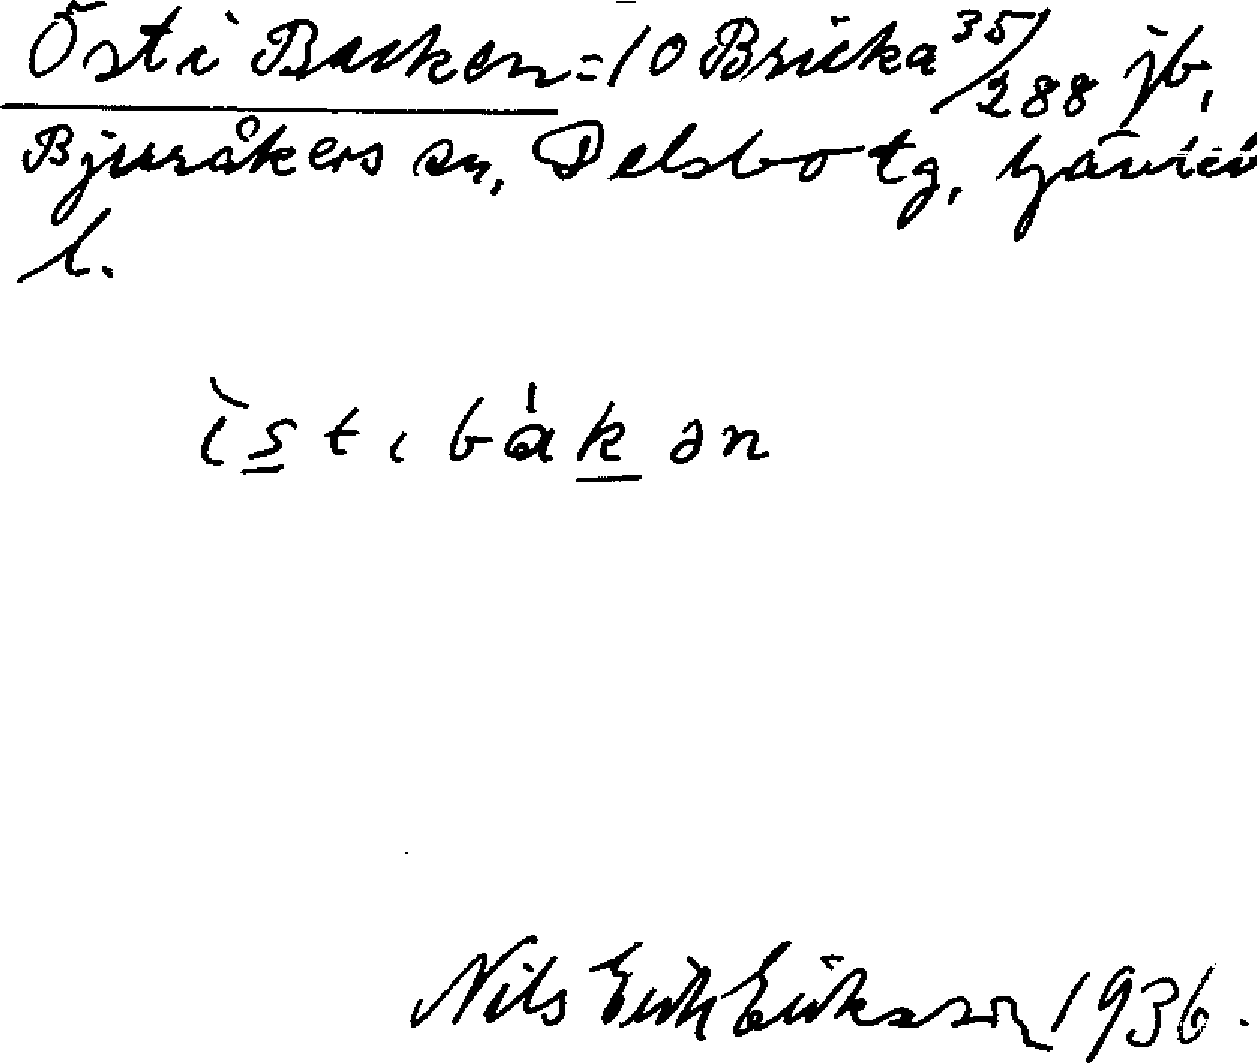 Öst i Backen = 10 Bricka 35/288 jb,
Bjuråkers sn, Delsbo tg, Gävleb
l.
ìst ı bákən
Nils Erik Eriksson 1936.